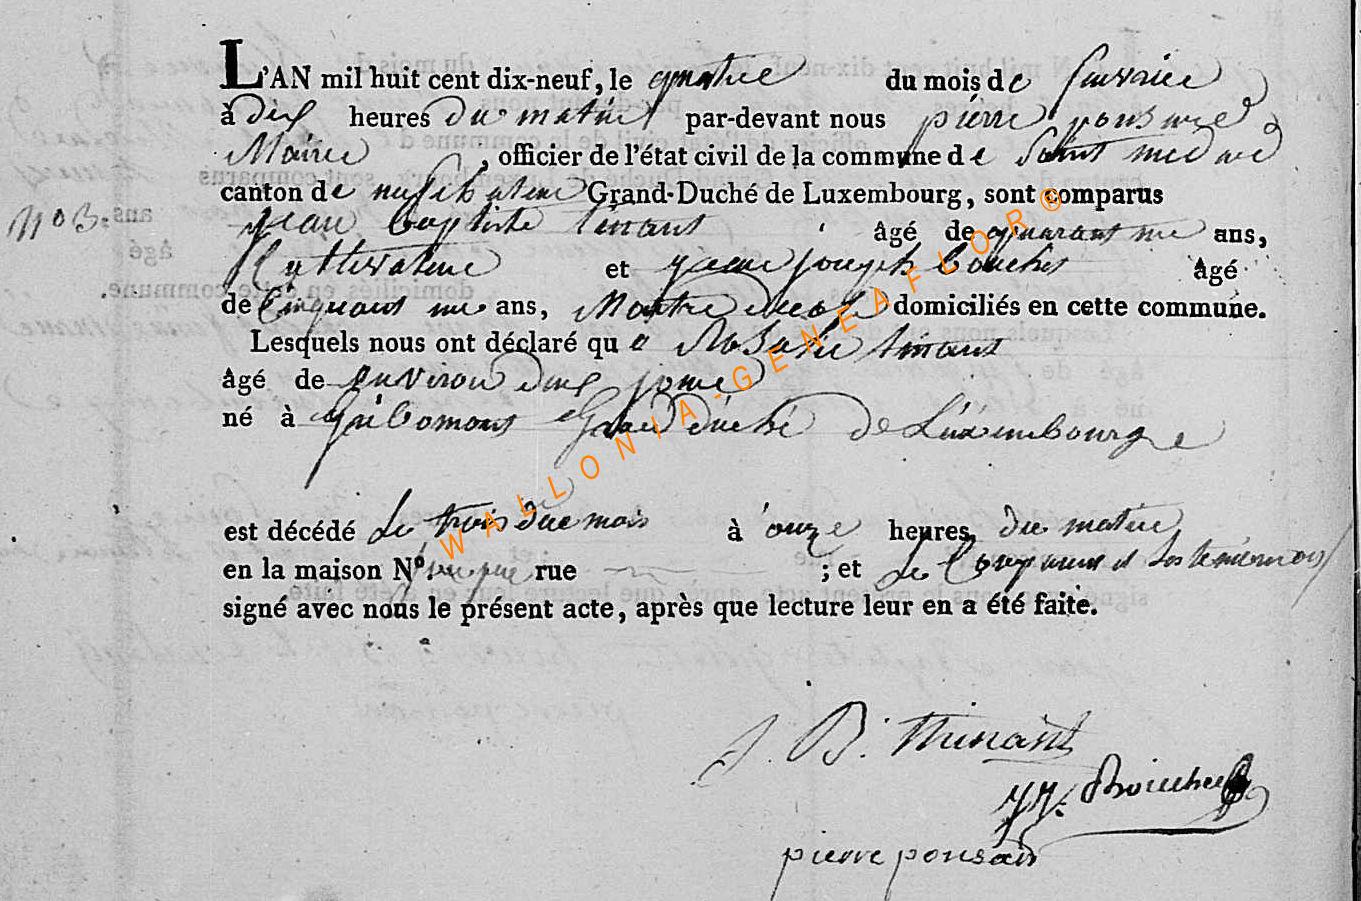 L'AN mil huit cent dix-neuf, le quatre du mois de fevraier
à dix heures du matin par-devant nous pierre ponsard
Maire, officier de l'état civil de la commune de Saint medard
canton de neufchateau Grand-Duché de Luxembourg, sont comparus
N° 3. jean baptiste tinant âgé de ans,
Cultivateur et jean joseph bouché âgé
de Cinquant ans, Maitre decole domiciliés en cette commune.
Lesquels nous ont déclaré que Rosalie tinant
âgé de environ jour
né à Gribomont Grand duché de Luxembourge
est décédé Le trois due mois à onze heures, du matin
en la maison N° rue ; et Le Comparant et Les temoins
signé avec nous le présent acte, après que lecture leur en a été faite.
J. B. thinant
JJ. Bouché
pierre ponsard
WALLONIA-GENEAFLOR®